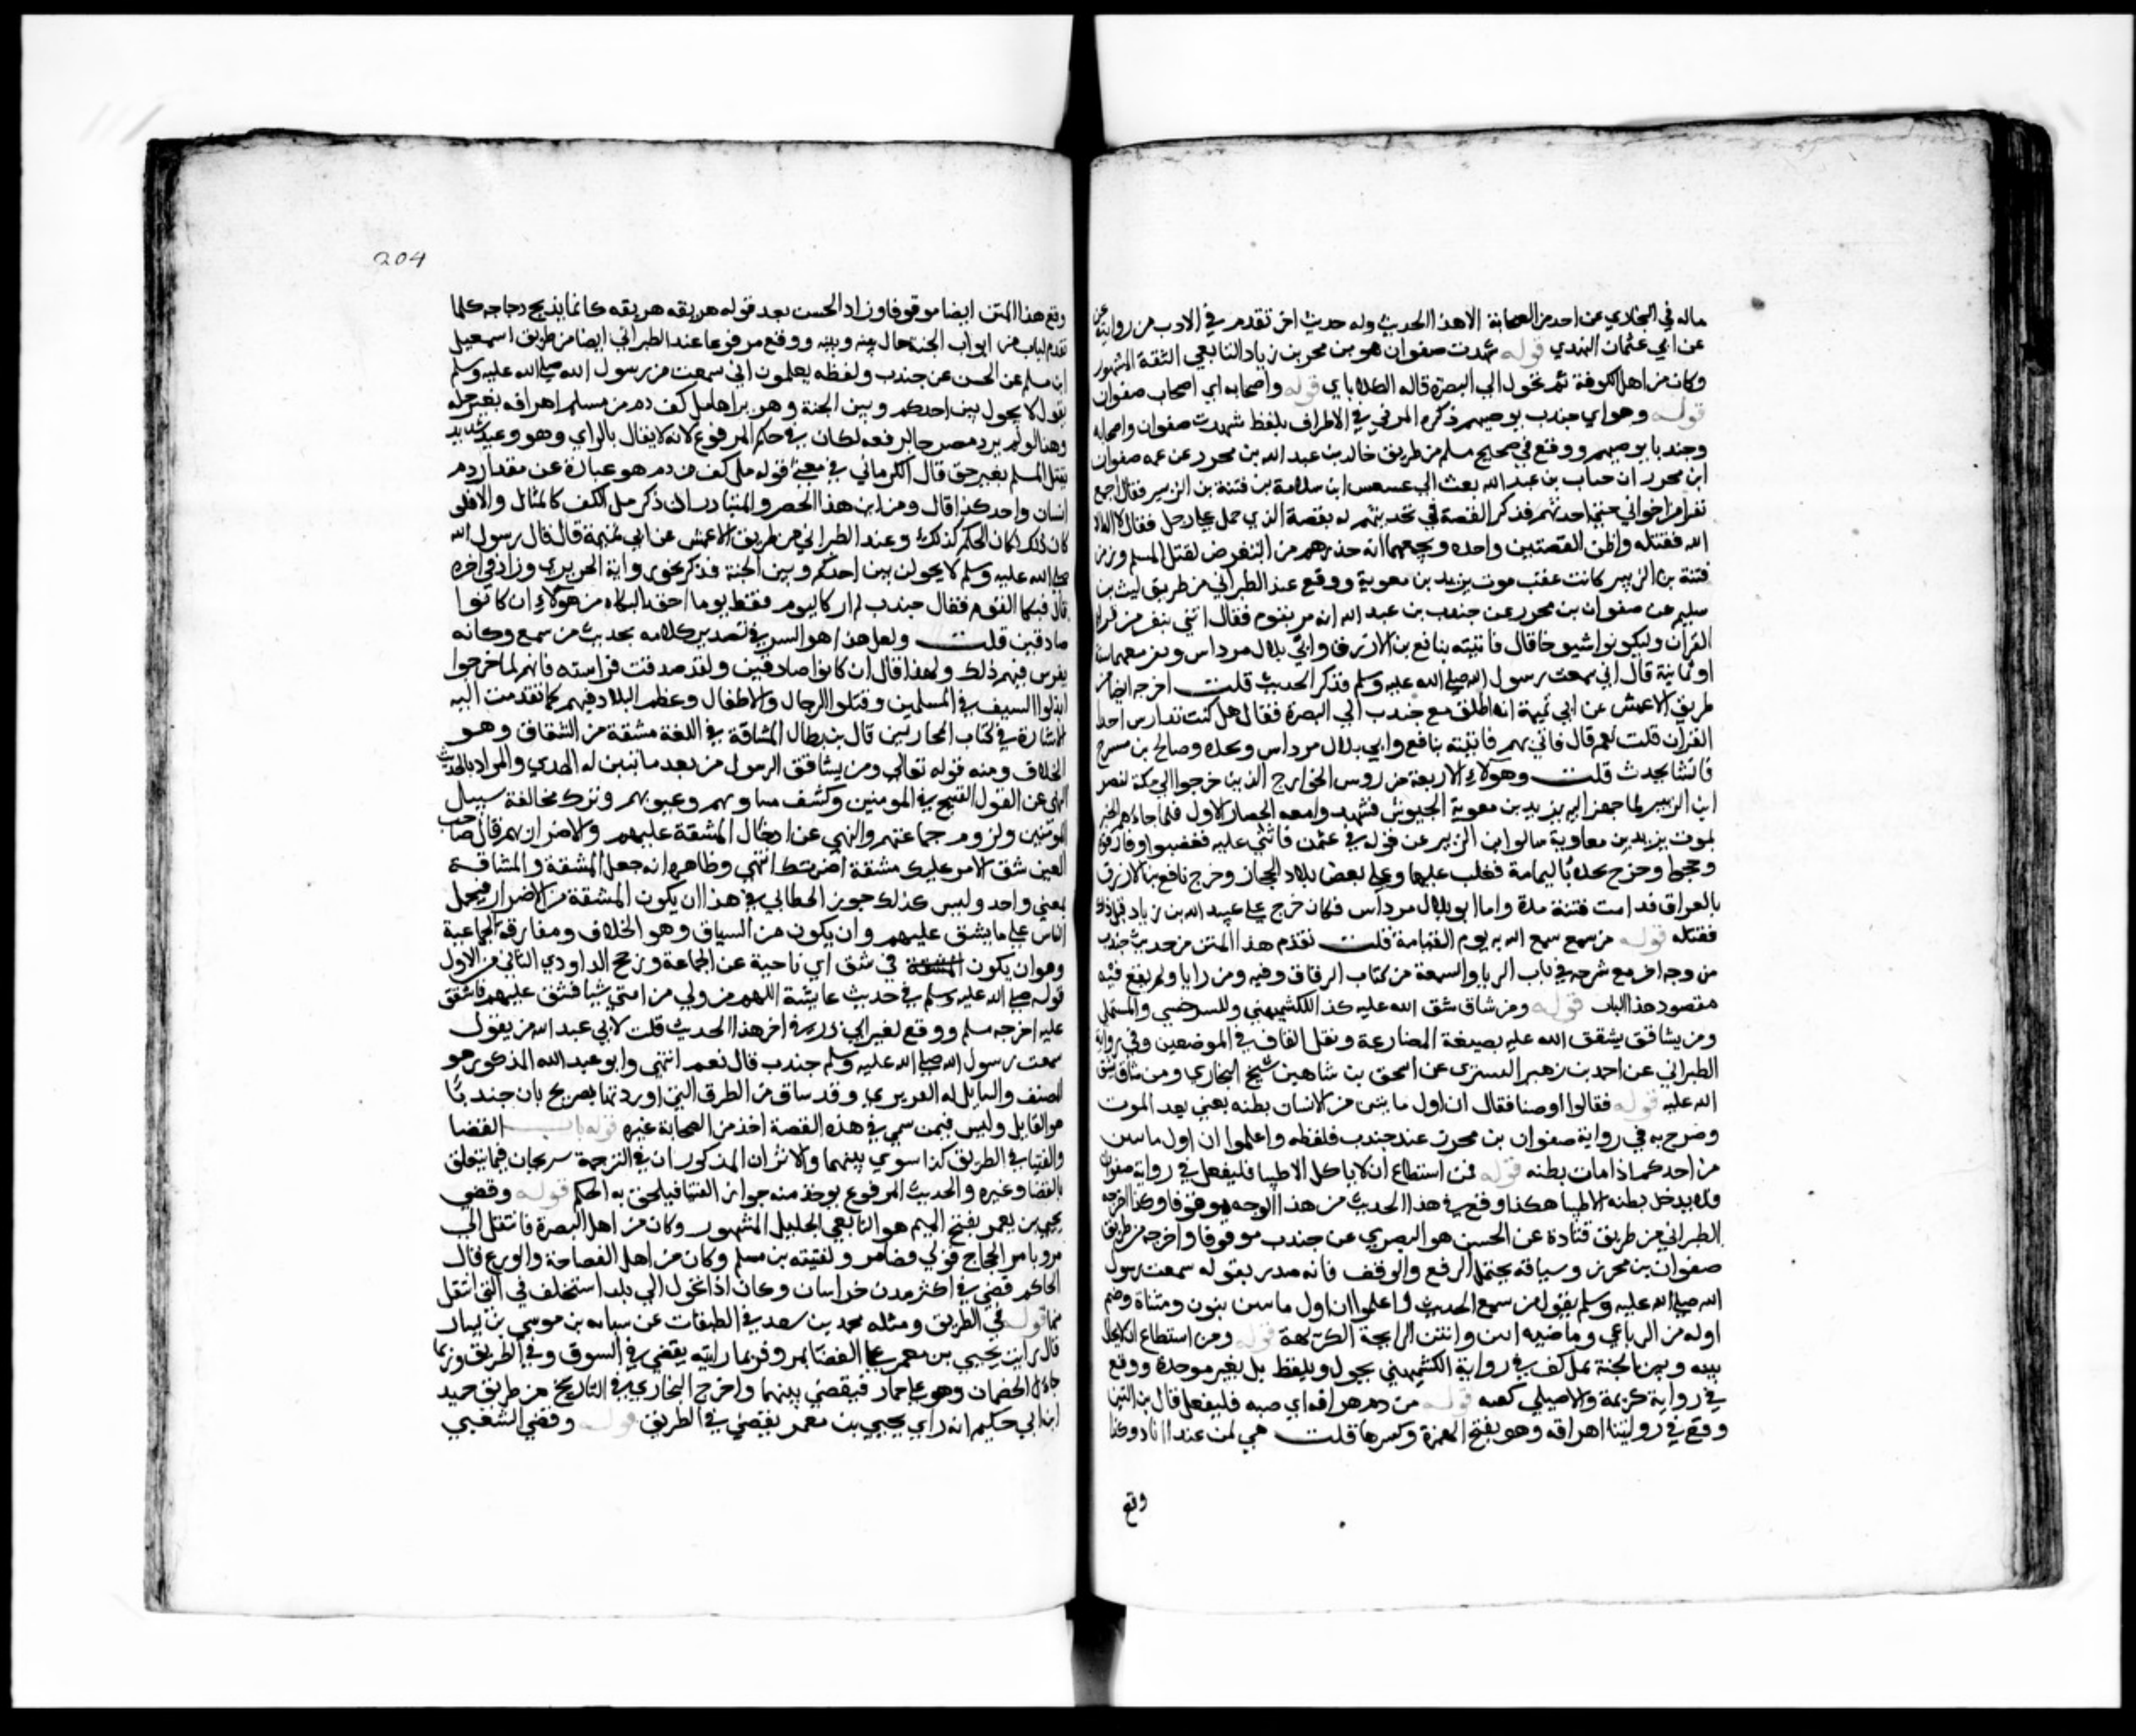 ماله في البخاري عن احد من الصحابة الا هذا الحديث وله حديث اخر تقدم في الادب من روايته
عن ابي عثمان النهدي قوله شهدت صفوان هو بن محرز بن زياد التابعي الثقة المشهور
وكان من اهل الكوفة ثم تحول الي البصرة قاله الكلاباذي قوله واصحابه اي اصحاب صفوان
قوله وهو اي جندب يوصيهم ذكره المزني في الاطراف بلفظ شهدت صفوان واصحابه
وجندبا يوصيهم ووقع في صحيح مسلم من طريق خالد بن عبد الله بن محرز عن عمه صفوان
ابن محرز ان جندب بن عبد الله بعث الي عسعس ابن سلامة من فتنة بن الزبير فقال اجمع
نفرا من اخواني حتي احدثهم فذكر القصة في تحديثهم له بقصة الذي حمل علي رجل فقال لا اله الا
الله فقتله واظن القصتين واحدة ويجمعهما انه حذرهم من التعرض لقتل المسلم وزمن
فتنة بن الزبير كانت عقب موت يزيد بن معوية ووقع عند الطبراني من طريق ليث بن
سليم عن صفوان بن محرز عن جندب بن عبد الله انه مر بقوم فقال ائتني بنفر من قراء
القران وليكونوا شيوخا قال فاتيته بنافع بن الازرق وابي بلال مرداس ونفر معهما ستة
او ثمانية قال اني سمعت رسول الله صلي الله عليه وسلم فذكر الحديث قلت اخرجه ايضا من
طريق الاعمش عن ابي تميمة انه اطلق مع جندب الي البصرة فقال هل كنت تدارس احدا
القران قلت نعم قال فاتني بهم فاتيته بنافع وابي بلال مرداس ونجده وصالح بن مسرح
فانشا يحدث قلت وهولاء الاربعة من روس الخوارج الذين خرجوا الي مكة لنصر
ابن الزبير لما جهز اليه يزيد بن معوية الجيوش فشهدوا معه الحصار الاول فلما جاءهم الخبر
بموت يزيد بن معاوية سالوا ابن الزبير عن قوله في عثمن فاثني عليه فغضبوا وفارقوه
وحجوا وخرج نجده باليمامة فغلب عليها وعلي بعض بلاد الحجاز وخرج نافع بن الازرق
بالعراق فدامت فتنة مدة واما ابو بلال مرداس فكان خرج علي عبيد الله بن زياد قبل ذلك
فقتله قوله من سمع سمع الله به يوم القيامة قلت تقدم هذا المتن من حديث جندب
من وجه اخر مع شرحه في باب الريا والسمعة من كتاب الرقاق وفيه ومن رايا ولم يقع فيه
مقصود هذا الباب قوله ومن شاق شق الله عليه كذا للكشميهني وللسرخسي والمستملي
ومن يشاقق يشقق الله عليه بصيغة المضارعة ونقل القاف في الموضعين وفي رواية
الطبراني عن احمد بن زهير التستري عن اسحق بن شاهين شيخ البخاري ومن شاق يشق
الله عليه قوله فقالوا اوصنا فقال ان اول ما ينتن من الانسان بطنه يعني بعد الموت
وصرح به في رواية صفوان بن محرز عند جندب فلفظه واعلموا ان اول ما ينتن
من احدكم اذا مات بطنه قوله فمن استطاع ان لا ياكل الا طيبا فليفعل في رواية صفوان
فلا يدخل بطنه الا طيبا هكذا وقع في هذا الحديث من هذا الوجه موقوفا وكذا اخرجه
الطبراني من طريق قتادة عن الحسن هو البصري عن جندب موقوفا واخرجه من طريق
صفوان بن محرز وسياقه يحتمل الرفع والوقف فانه صدر بقوله سمعت رسول
الله صلي الله عليه وسلم يقول من سمع الحديث واعلموا ان اول ما ينتن بنون ومثناة وضم
اوله من الرباعي وماضيه انتن وانتن الرايحة الكريهة قوله ومن استطاع ان لا يحال
بينه وبين الجنة بمل كف في رواية الكشميهني يحول وبلفظ بل بغير موحدة ووقع
في رواية كريمة والاصيلي كفه قوله من دم هراقه اي صبه فليفعل قال بن التين
وقع في روايتنا اهراقه وهو بفتح الهمزة وكسرها قلت هي لمن عدا ابا ذر وكذا
وقع
204
وقع هذا المتن ايضا موقوفا وزاد الحسن بعد قوله هريقه هريقه كانما يذبح دجاجه كلما
تقدم لباب من ابواب الجنة حال بينه وبينه ووقع مرفوعا عند الطبراني ايضا من طريق اسمعيل
ابن مسلم عن الحسن عن جندب ولفظه يعلمون اني سمعت من رسول الله صلي الله عليه وسلم
يقول لا يحول بين احدكم وبين الجنة وهو يراها مل كف دم من مسلم اهراقه بغير حله
وهذا لو لم يرد مصرحا برفعه لكان في حكم المرفوع لانه لا يقال بالراي وهو وعيد شديد
بقتل المسلم بغير حق قال الكرماني في معني قوله مل كف من دم هو عبارة عن مقدار دم
انسان واحد كذا قال ومن اين هذا الحصر والمتبادر ان ذكر مل الكف كالمثال والا فلو
كان ذلك لكان الحكم كذلك وعند الطبراني من طريق الاعمش عن ابي تميمة قال قال رسول الله
صلي الله عليه وسلم لا يحولن بين احدكم وبين الجنة فذكر نحو رواية الجريري وزاد في اخره
قال فبكا القوم فقال جندب لم ار كاليوم قط يوما احق البكاه من هولاء ان كانوا
صادقين قلت ولعل هذا هو السر في تصديره كلامه بحديث من سمع وكانه
تفرس فيهم ذلك ولهذا قال ان كانوا صادقين ولقد صدقت فراسته فانهم لما خرجوا
بذلوا السيف في المسلمين وقتلوا الرجال والاطفال وعظم البلا فيهم كما تقدمت اليه
الاشارة في كتاب المحاربين قال بن بطال المشاقة في اللغة مشقة من الشقاق وهو
الخلاف ومنه قوله تعالي ومن يشاقق الرسول من بعد ما تبين له الهدي والمراد بالحديث
النهي عن القول القبيح في المومنين وكشف مساويهم وعيوبهم وترك مخالفة سبيل
المومنين ولزوم جماعتهم والنهي عن ادخال المشقة عليهم والاضرار بهم قال صاحب
العين شق الامر عليك مشقة اضر بك انتهي وظاهره انه جعل المشقة والمشاقة
بمعني واحد وليس كذلك جوز الخطابي في هذا ان يكون المشقة من الاضرار فيحمل
الناس علي ما يشق عليهم وان يكون من السياق وهو الخلاف ومفارقة الجماعة
وهو ان يكون في شق اي ناحية عن الجماعة ورجح الداودي الثاني من الاول
قوله صلي الله عليه وسلم في حديث عايشة اللهم من ولي من امتي شيا فشق عليهم فاشقق
عليه اخرجه مسلم ووقع لغير ابي ذر في اخر هذا الحديث قلت لابي عبد الله من يقول
سمعت رسول الله صلي الله عليه وسلم جندب قال نعم انتهي وابو عبد الله المذكور هو
المصنف والسايل له الفربري وقد ساق من الطرق التي اوردتها يصرح بان جندبا
هو القايل وليس فيمن سمي في هذه القصة اخذ من الصحابة غيره قوله باب القضا
والفتيا في الطريق كذا سوي بينهما والاثران المذكوران في الترجمة سريحان فيما يتعلق
بالقضا وغيره والحديث المرفوع يوخذ منه جواز الفتيا فيلحق به الحكم قوله وقضي
يحيي بن يعمر بفتح الميم هو التابعي الجليل المشهور وكان من اهل البصرة فانتقل الي
مرو بامر الحجاج فولي قضا مرو لقتيبة بن مسلم وكان من اهل الفصاحة والورع قال
الحاكم قضي في اكثر مدن خراسان وكان اذا تحول الي بلد استخلف في التي انتقل
منها قوله في الطريق ومثله محمد بن سعد في الطبقات عن سبابه بن موسي بن يسار
قال رايت يحيي بن معمر علي القضا بمرو فربما رايته يقضي في السوق وفي الطريق وربما
جاءه الخصمان وهو علي حمار فيقضي بينهما واخرج البخاري في التاريخ من طريق حميد
ابن ابي حكيم انه راي يحيي بن معمر يقضي في الطريق قوله وقضي الشعبي